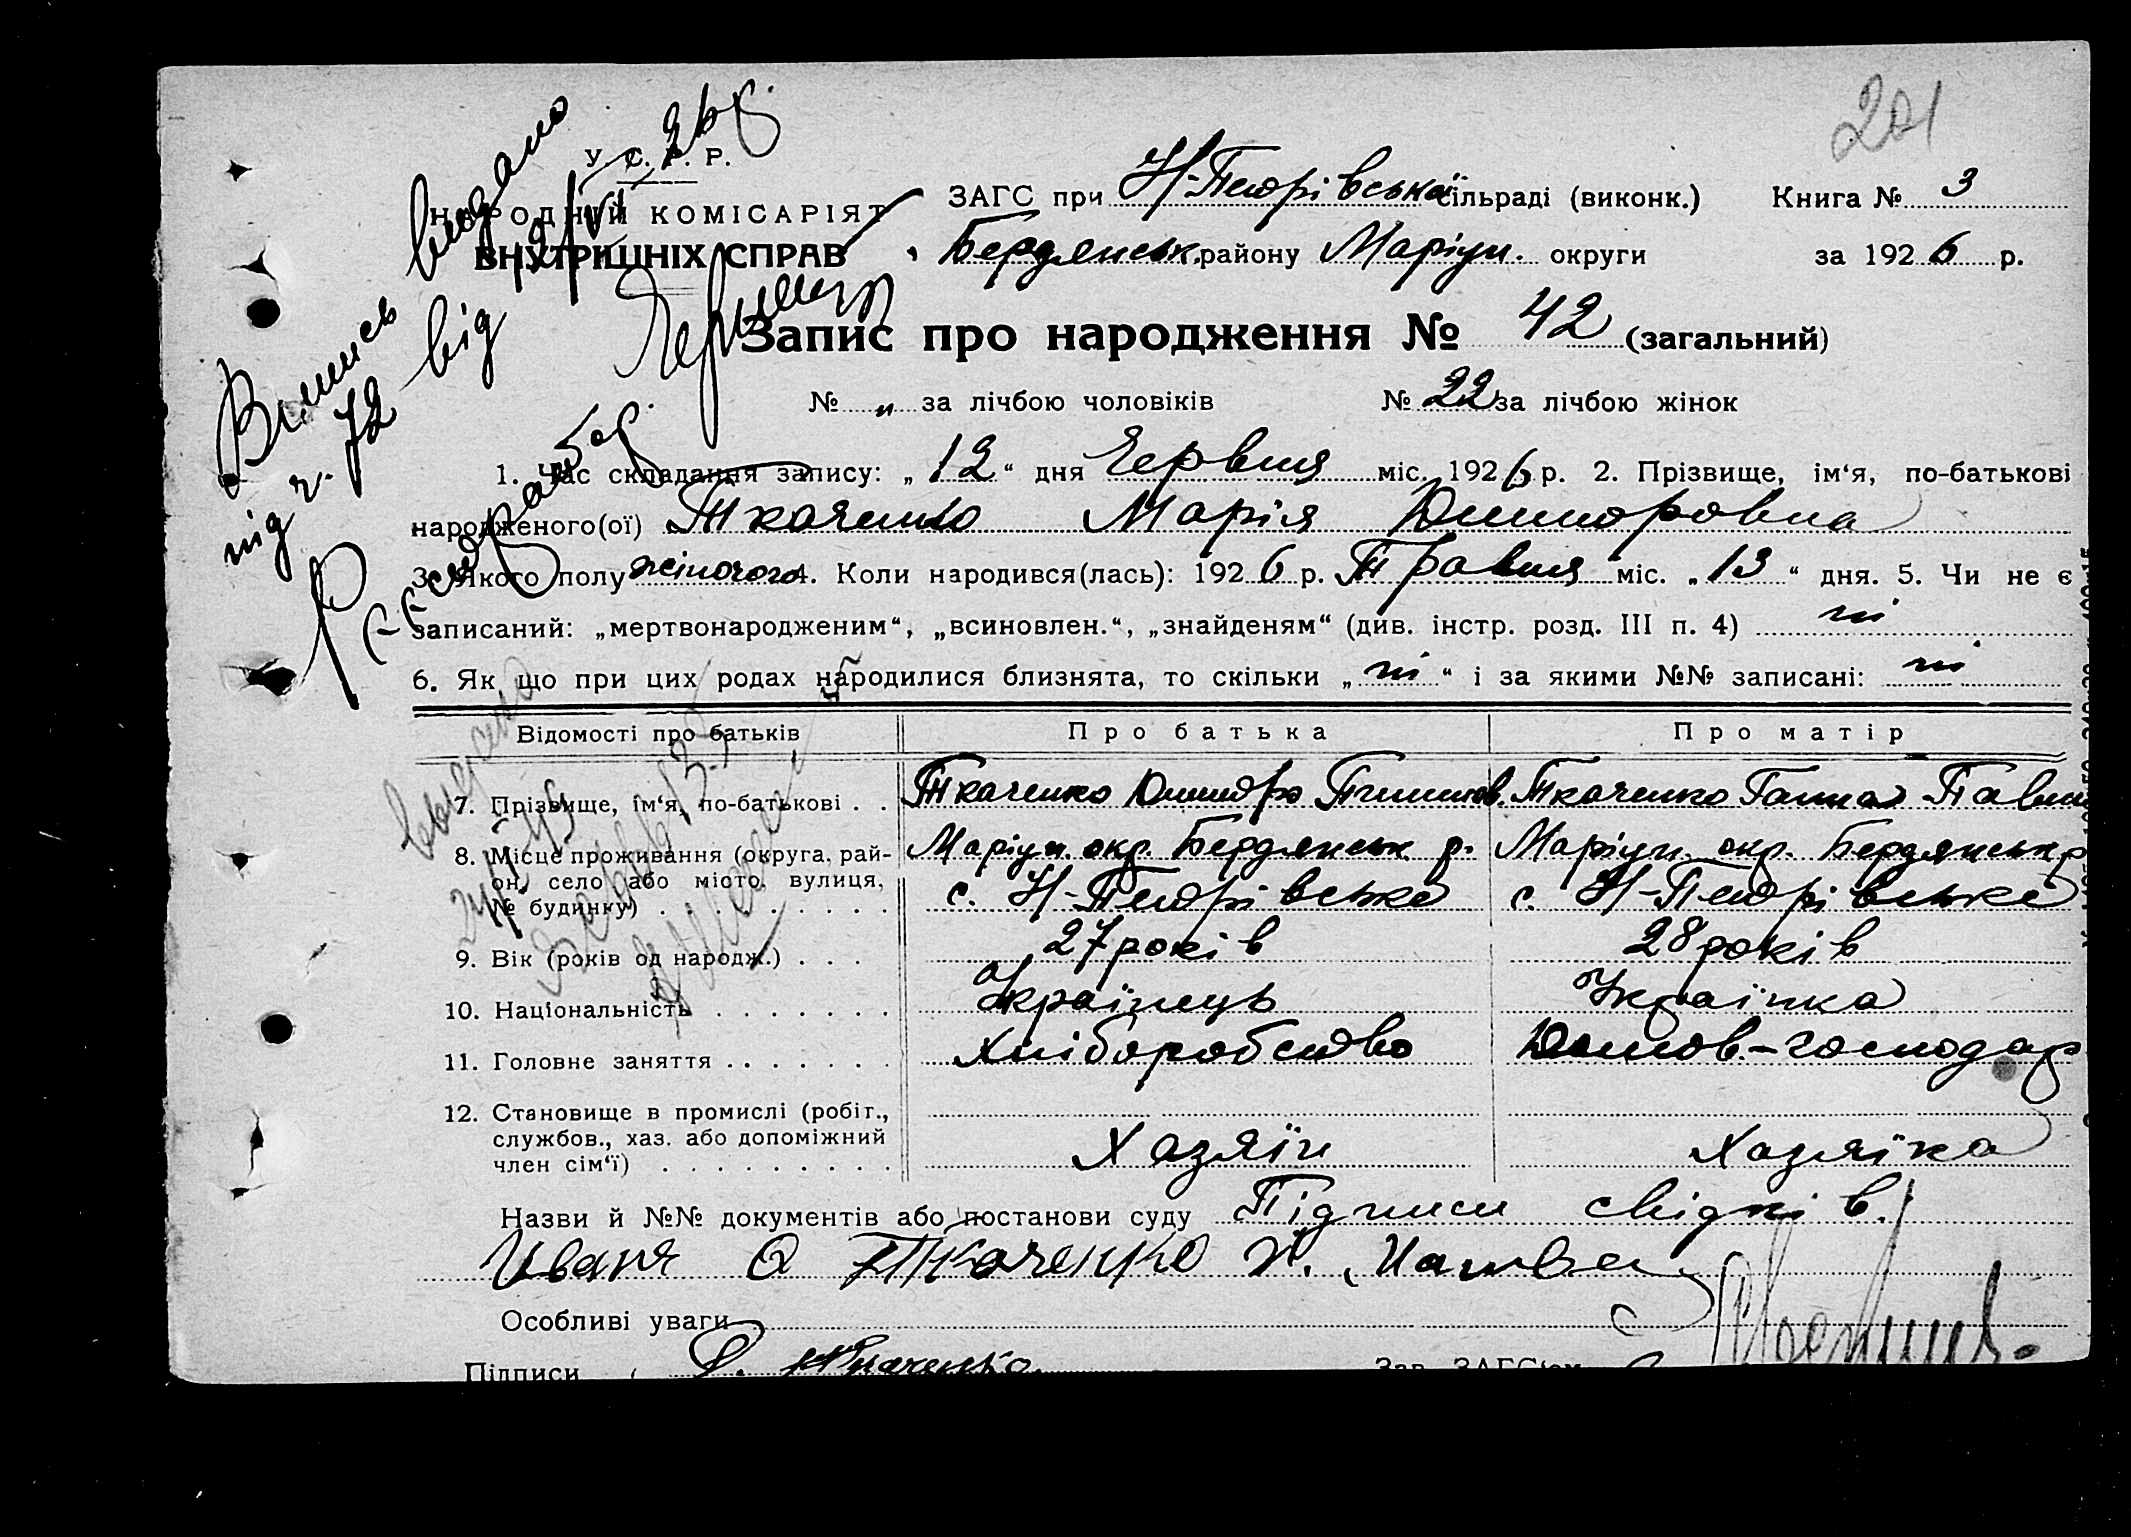 201
У. С. Р. Р.
НАРОДНИЙ КОМІСАРІЯТ
ВНУТРІШНІХ СПРАВ
ЗАГС при Н-Петрівській сільраді (виконк.) Книга № 3
Бердянськ. району Маріуп. округи за 1926 р.
Випись видано
під ч. 72 від
Запис про народження № 42 (загальний)
№ „ за лічбою чоловіків № 22 за лічбою жінок
1. Час складання запису: „12“ дня Червня міс. 1926 р. 2. Прізвище, ім‘я, по-батькові
народженого(ої) Ткаченко Марія Дмитровна
3. Якого полу жіночого 4. Коли народився(лась): 1926 р. Травня міс. „13“ дня. 5. Чи не є
записаний: „мертвонародженим“, „всиновлен.“, „знайденям“ (див. інстр. розд. III п. 4) ні
6. Як що при цих родах народилися близнята, то скільки „ні“ і за якими №№ записані: ні
Відомості про батьків Про батька Про матір
7. Прізвище, ім‘я, по-батькові . . Ткаченко Дмитро Ткаченко Ганна Павл
8. Місце проживання (округа, рай- Маріуп. окр. Бердянськ р. Маріуп. окр. Бердянськ р
он, село або місто, вулиця, с. Н-Петрівське с. Н-Петрівське
№ будинку) . . . . . . . . .
9. Вік (років од народж.) . . . 27 років 28 років
10. Національність . . . . . . . Українець Українка
11. Головне заняття . . . . . . . Хліборобство Домов.-господар
12. Становище в промислі (робіт.,
службов., хаз. або допоміжний Хазяїн Хазяїка
член сім‘ї) . . . . . . . . .
Назви й №№ документів або постанови суду Підписи свідків.
Иваня О Ткаченко
Особливі уваги
Підписи Д. Ткаченко Зав. ЗАГС‘ом